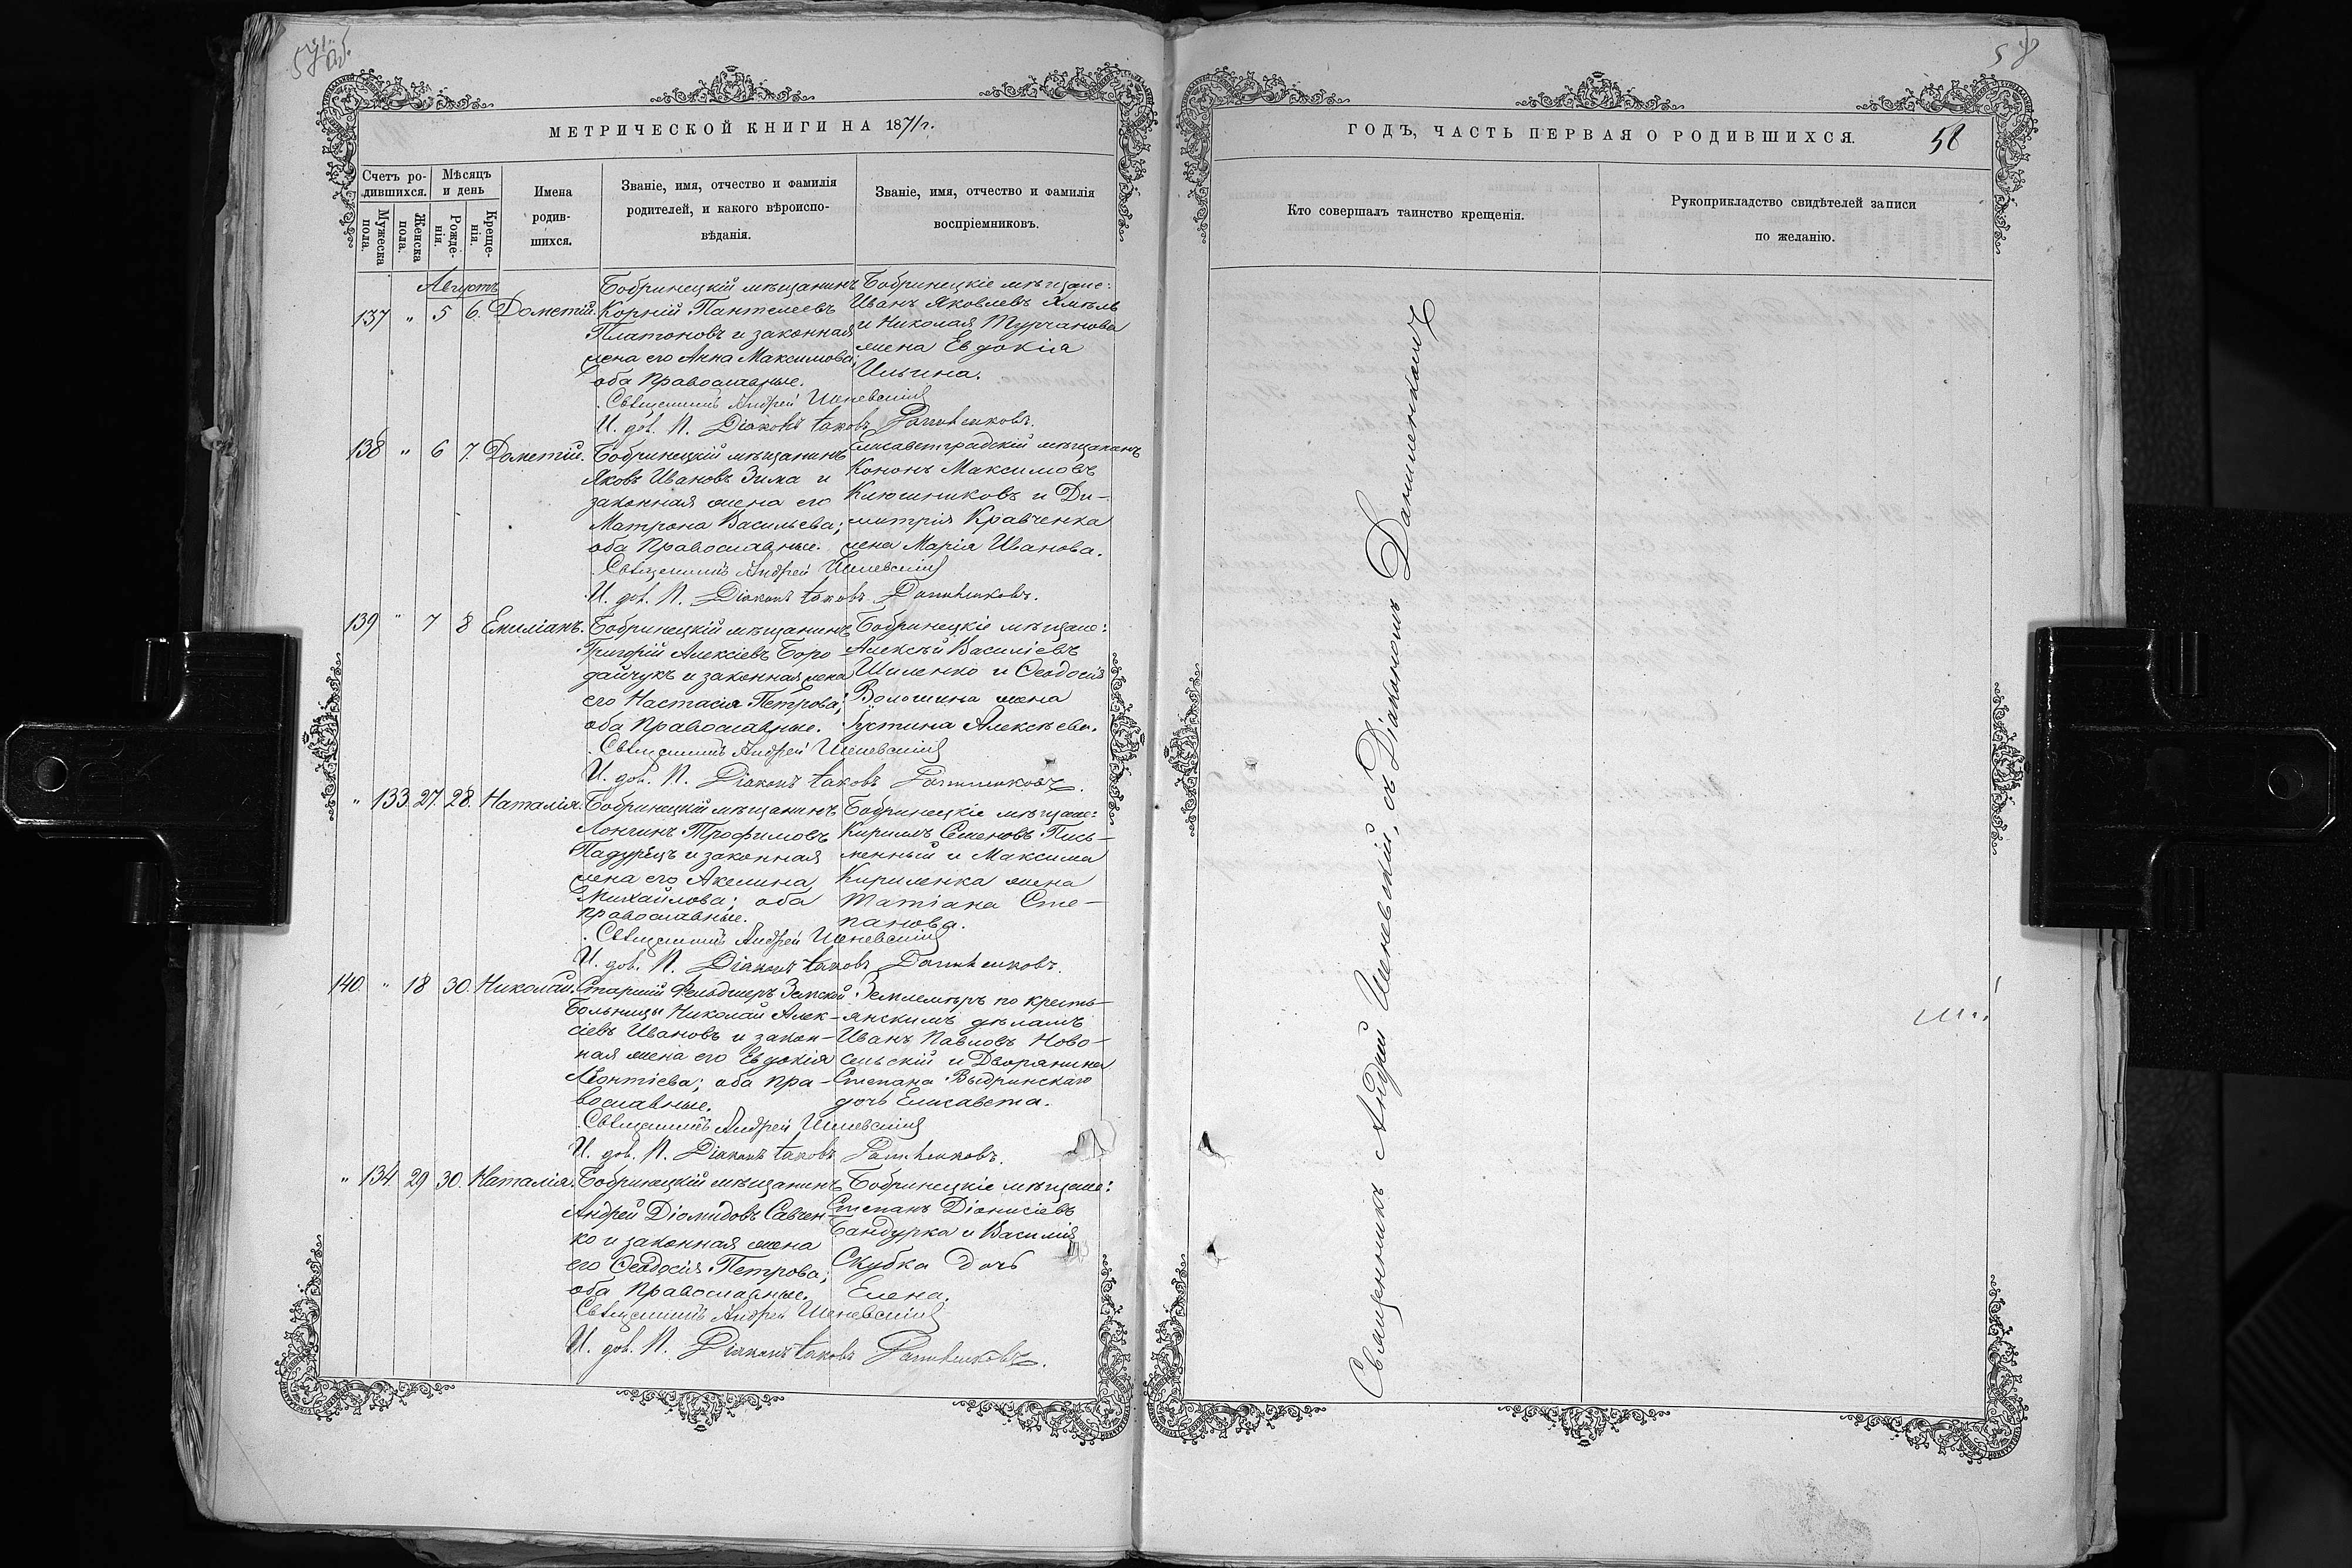 57 об.
МЕТРИЧЕСКОЙ КНИГИ НА 1871 г.
Счетъ ро-
дившихся.
Мѣсяцъ
и день
Мужеска
пола.
Женска
пола.
Рожде-
нія.
Креще-
нія.
Имена
родив-
шихся.
Званіе, имя, отчество и фамилія
родителей, и какого вѣроиспо-
вѣданія.
Званіе, имя, отчество и фамилія
воспріемниковъ.
Августъ
137 " 5 6. Дометій.
Бобринецкій мѣщанинъ
Корній Пантелеевъ
Платоновъ и законная
жена его Анна Максимова;
оба Православные.
Бобринецкіе мѣщане:
Иванъ Яковлевъ Хмѣль
и Николая Турчанова
жена Евдокія
Ильина.
Священникъ Андрей
И. д. П. Діаконъ Іаковъ
138 " 6 7. Дометій.
Бобринецкій мѣщанинъ
Яковъ Ивановъ Зима и
законная жена его
Матрона Васильева;
оба Православные.
Елисаветградскій мѣщанинъ
Кононъ Максимовъ
Ключниковъ и Ди-
митрія Кравченка
жена Марія Иванова.
Священникъ Андрей
И. д. П. Діаконъ Іаковъ
139 " 7 8 Емиліанъ.
Бобринецкій мѣщанинъ
Григорій Алексіевъ Боро-
дайчукъ и законная жена
его Настасія Петрова;
оба Православные.
Бобринецкіе мѣщане:
Алексѣй Василіевъ
Шиленко и Ѳеодосія
Волошина жена
Іустина Алексѣева.
Священникъ Андрей
И. д. П. Діаконъ Іаковъ
" 133. 27. 28. Наталія.
Бобринецкій мѣщанинъ
Лонгинъ Трофимовъ
Падурецъ и законная
жена его Акелина
Михайлова; оба
православные.
Бобринецкіе мѣщане:
Кирилъ Семеновъ Пись-
менный и Максима
Кириленка жена
Татіана Сте-
панова.
Священникъ Андрей
И. д. П. Діаконъ Іаковъ
140. " 18 30. Николай.
Старшій Фельдшеръ Земской
Больницы Николай Алек-
сіевъ Ивановъ и закон-
ная жена его Евдокія
Леонтіева; оба пра-
вославные.
Землемѣръ по кресть-
янскимъ дѣламъ
Иванъ Павловъ Ново-
сельскій и Дворянина
Степана Выдринскаго
дочь Елисавета.
Священникъ Андрей
И. д. П. Діаконъ Іаковъ
" 134. 29 30. Наталія.
Бобринецкій мѣщанинъ
Андрей Діомидовъ Савчен-
ко и законная жена
его Ѳеодосія Петрова;
оба Православные.
Бобринецкіе мѣщане:
Степанъ Діонисіевъ
Бандурка и Василія
Скубка дочь
Елена.
Священникъ Андрей
И. д. П. Діаконъ Іаковъ
58
ГОДЪ, ЧАСТЬ ПЕРВАЯ О РОДИВШИХСЯ.
58
Кто совершалъ таинство крещенія.
Рукоприкладство свидѣтелей записи
по желанію.
Священникъ Андрей съ Діакономъ